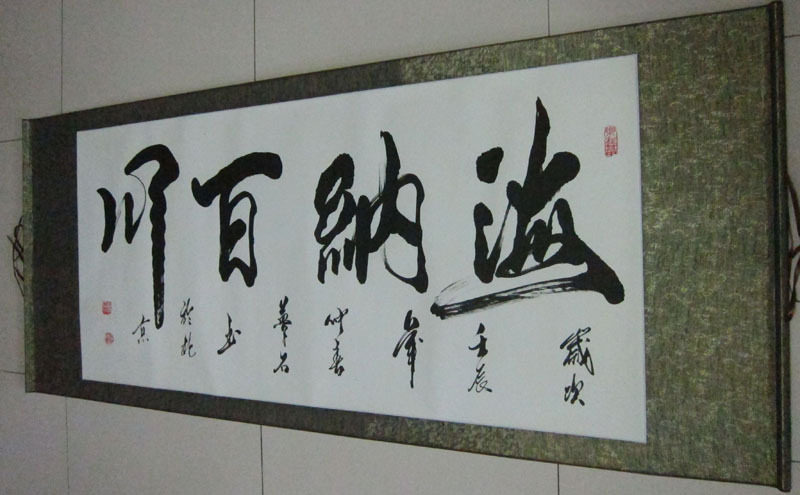 海納百川
歲次壬辰年仲春華石書於北京